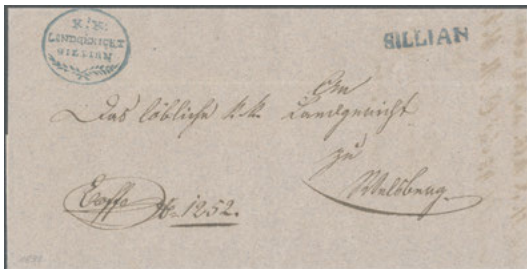 K: K:
LANDGERICHT
SILLIAN
SILLIAN
An
Das löbliche k.k. Landgericht
zu
Welsberg
Exoffo
No. 1252.